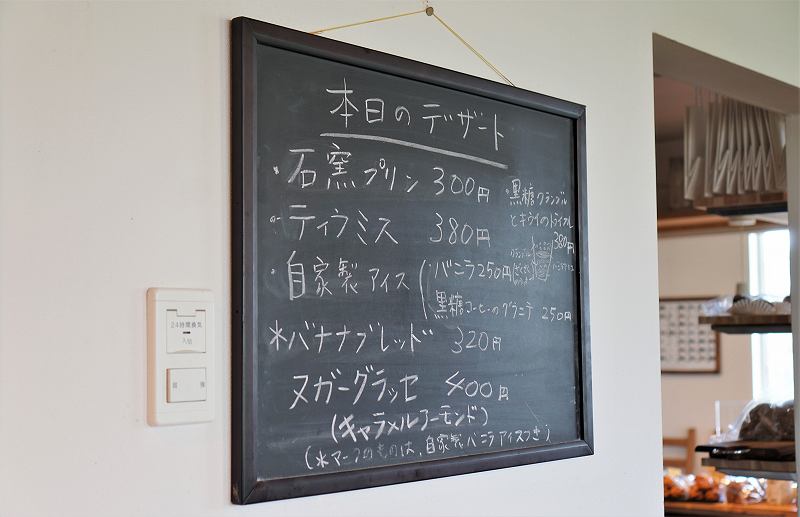 本日のデザート
・石窯プリン 300円
・ティラミス 380円
・自家製アイス
バニラ250円
黒糖コーヒーのグラニテ 250円
＊バナナブレッド 320円
ヌガーグラッセ 400円
(キャラメルアーモンド)
(＊マークのものは、自家製バニラアイスつき)
・黒糖クランブル
とキウイのトライフル
380円
24時間換気